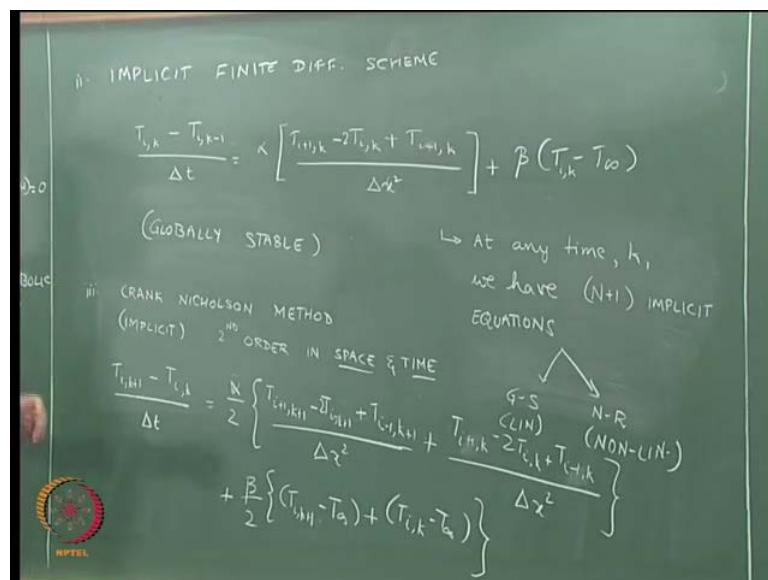 ii. IMPLICIT FINITE DIFF. SCHEME
(T_{i,k} - T_{i,k-1}) / Δt = α [ (T_{i+1,k} - 2T_{i,k} + T_{i+1,k}) / Δx² ] + β (T_{i,k} - T_∞)
)=0
(GLOBALLY STABLE)
↳ At any time, k,
we have (N+1) IMPLICIT
EQUATIONS
G-S
(LIN)
N-R
(NON-LIN.)
BOLIC
iii. CRANK NICHOLSON METHOD
(IMPLICIT) 2ND ORDER IN SPACE & TIME
(T_{i,k+1} - T_{i,k}) / Δt = α/2 { (T_{i+1,k+1} - 2T_{i,k+1} + T_{i-1,k+1}) / Δx² + (T_{i+1,k} - 2T_{i,k} + T_{i-1,k}) / Δx² }
+ β/2 { (T_{i,k+1} - T_∞) + (T_{i,k} - T_∞) }
NPTEL